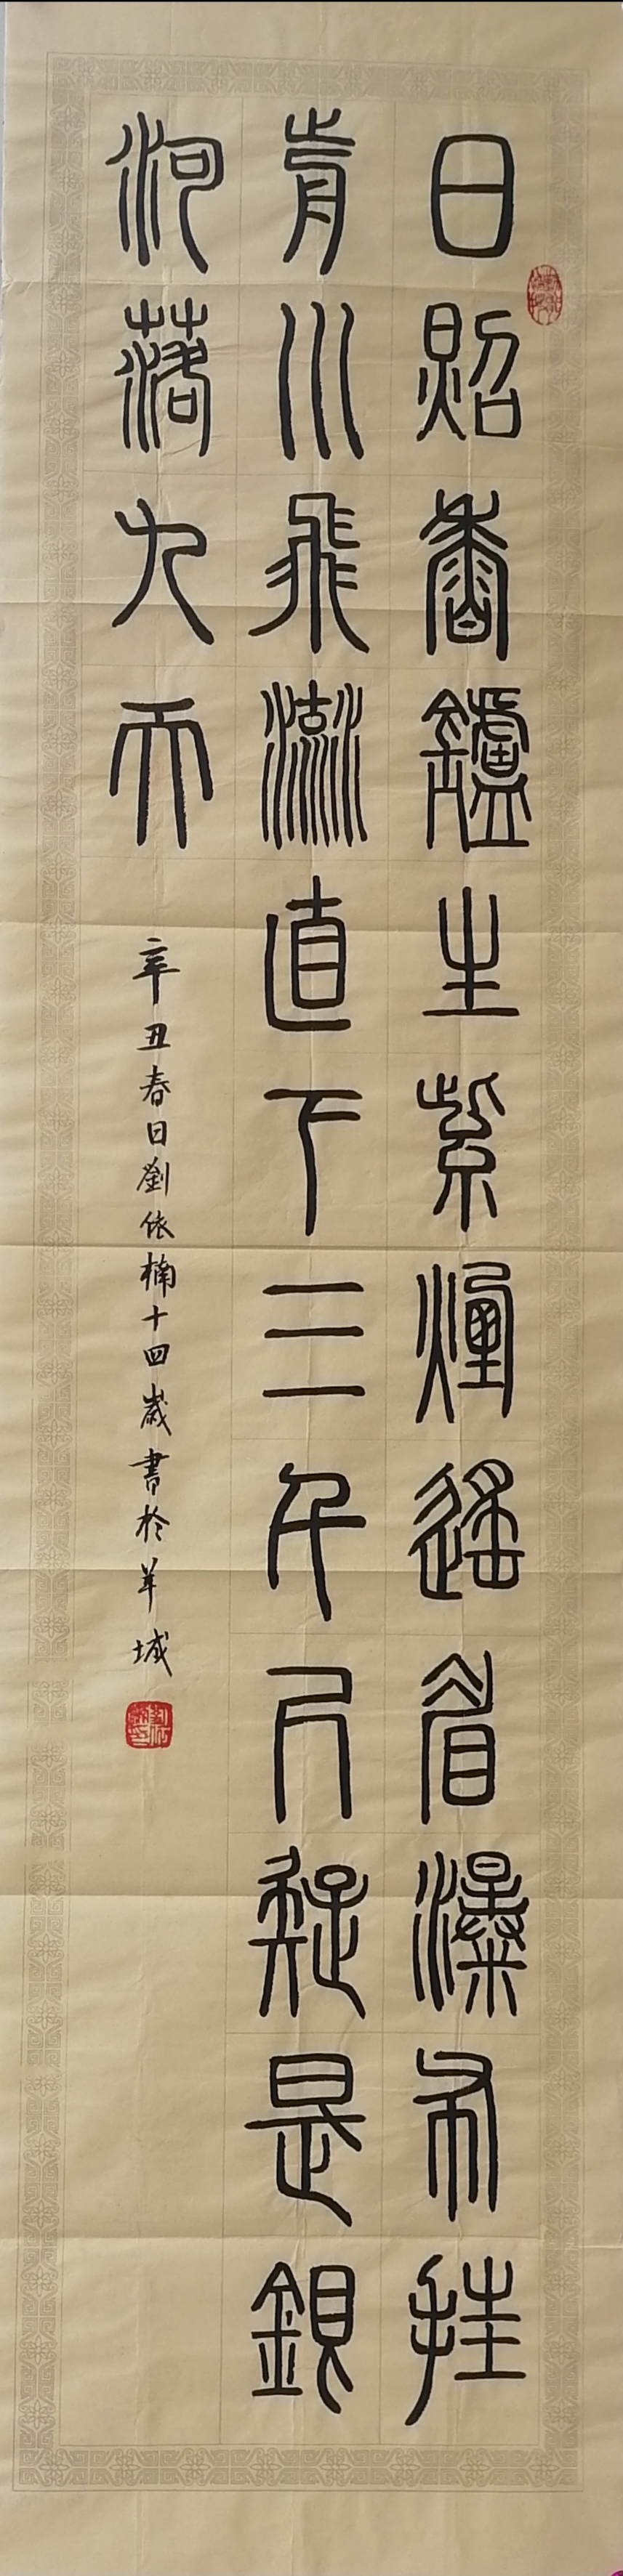 日照香鑪生紫煙遙看瀑布挂
前川飛流直下三千尺疑是銀
河落九天
辛丑春日劉依楠十四歲書於羊城